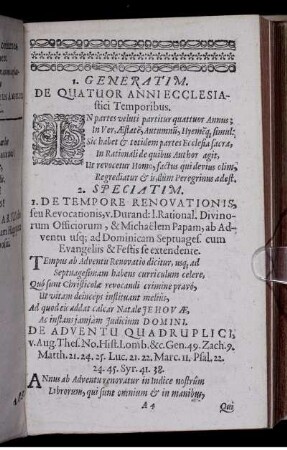 1. GENERATIM.
DE QUATUOR ANNI ECCLESIA-
stici Temporibus.
IN partes veluti partitur quattuor Annus;
In Ver, Æstatē, Autumnū, Hyemēq; simul;
Sic habet & totidem partes Ecclesia sacra,
In Rationali de quibus Author agit,
Ut revocetur Homo, factus qui devius olim,
Regrediatur & is dum Peregrinus adest.
2. SPECIATIM.
1. DE TEMPORE RENOVATIONIS,
seu Revocationis, v. Durand: l. Rational. Divino-
rum Officiorum, & Michaëlem Papam, ab Ad-
ventu usq; ad Dominicam Septuages. cum
Evangeliis & Festis se extendente.
Tempus ab Adventu Renovatio dicitur, usq, ad
Septuagesimam habens curriculum celere,
Quô sunt Christicolæ revocandi crimine pravô,
Ut vitam deinceps instituant meliùs,
Ad quod eis addat calcar Natale JEHOVÆ,
Ac instans jamjam Judicium DOMINI.
DE ADVENTU QUADRUPLICI,
v. Aug. Thes. No. Hist. Lomb. &c. Gen. 49. Zach. 9.
Matth. 21. 24. 25. Luc. 21. 22. Marc. 11. Psal. 22.
24. 45. Syr. 41. 38.
Annus ab Adventu renovatur in Indice nostrûm
Librorum, qui sunt omnium & in manibus,
A 4 Qui